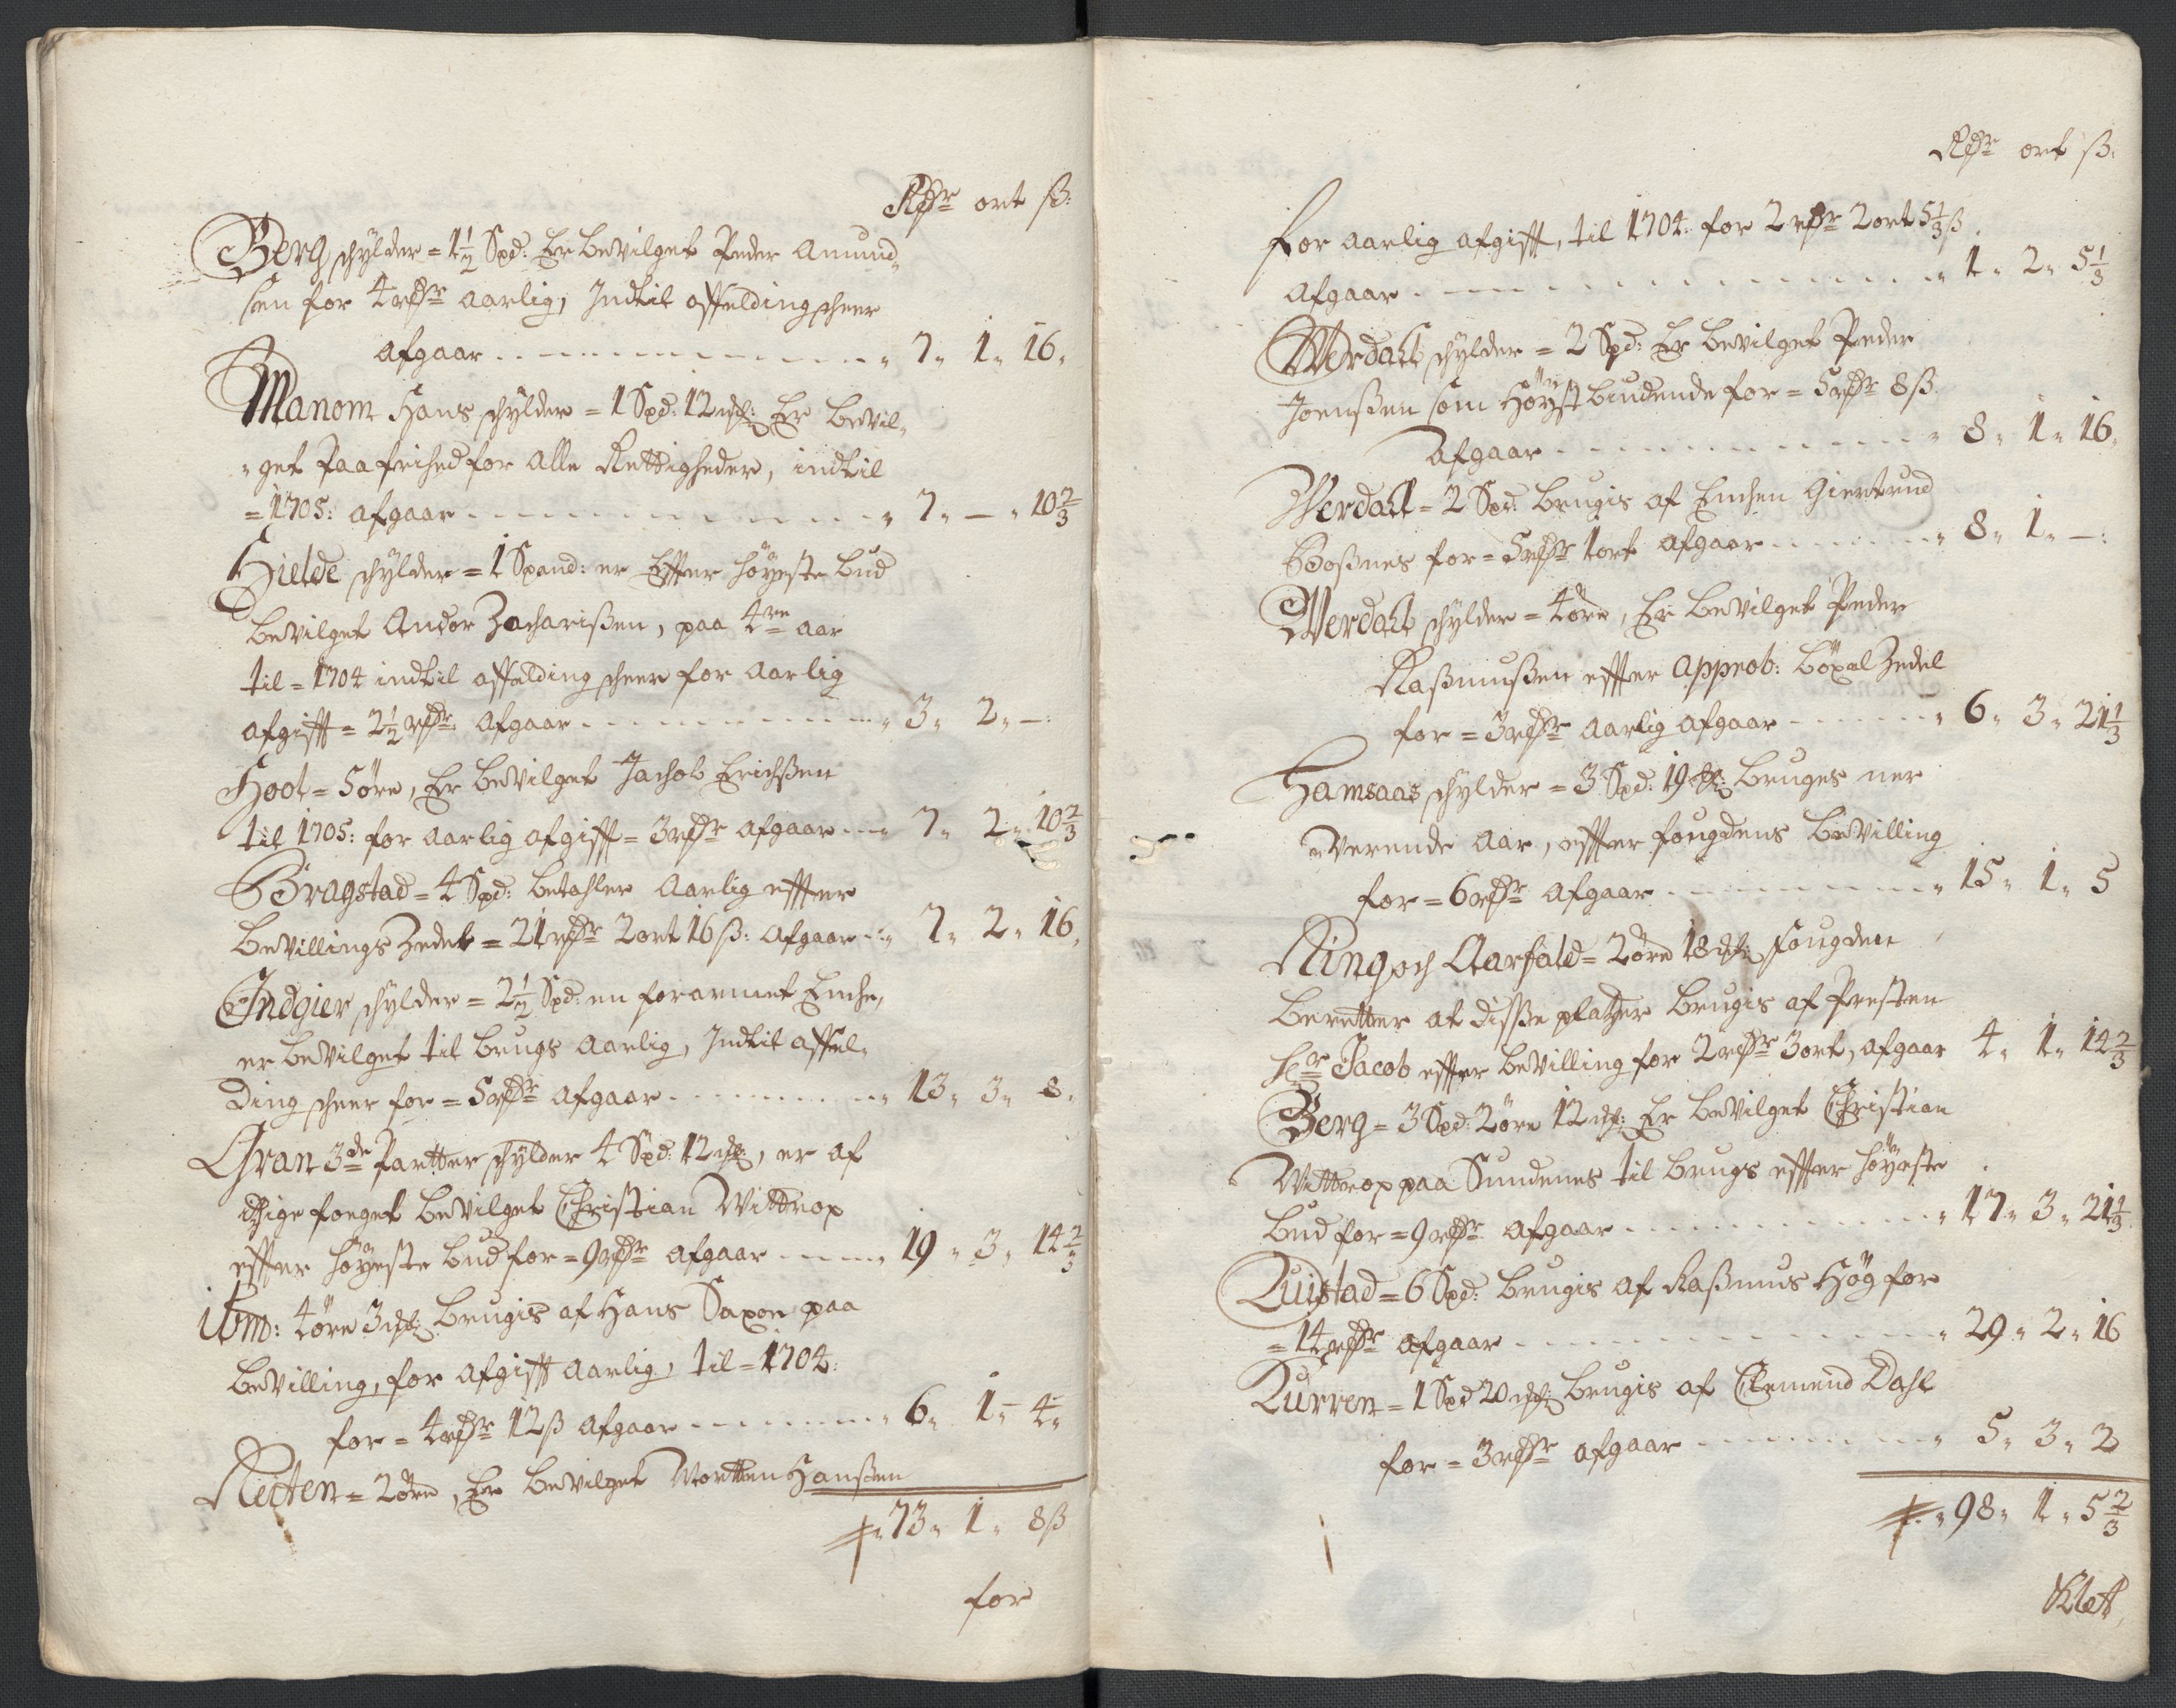 Rdr ort ß:
Berg schylder = 1 1/2 Spd: Er beVilget Peder Amund-
sen for 4 rdr aarlig, Indtil affelding scheer
afgaar 7. 1. 16.
Manom Hans schylder = 1 Spd: 12 mkl: Er beVil-
get paa frihed for alle Rettigheder, indtil
= 1705: afgaar 7. — . 10 2/3
Hielde schylder = 1 Spand: er Effter höyeste bud
beVilget Andor Zacharißen, paa 4re aar
til = 1704 indtil affelding scheer for aarlig
afgifft = 2 1/2 rdr: afgaar 3. 2. —:
Hoot = 5 öre, Er beVilget Jachob Erichßen
til 1705: for aarlig afgifft = 3 rdr afgaar 7. 2. 10 2/3
Bragstad = 4 Spd: betahler aarlig effter
beVillings Zedel = 21 rdr 2 ort 16 ß: afgaar 7. 2. 16.
Indgier schylder = 2 1/2 Spd: en forarmet Enche,
er beVilget til brugs aarlig, Indtil affel-
ding scheer for = 5 rdr afgaar 13. 3. 8.
Gran 3de Partter schylder 4 Spd: 12 mkl:, er af
forget beVilget Christian Wittrop
effter höyeste bud for = 9 rdr afgaar 19. 3. 14 2/3
ibm: 4 öre 3 mkl: brugis af Hans Saxon paa
beVilling, for afgifft aarlig, til = 1704:
for = 4 rdr 12 ß afgaar 6. 1. 4.
Recten = 2 öre, Er beVilget Mortten Hanßen
73. 1. 8 ß
for
Rdr ort ß:
for aarlig afgifft, til 1704: for 2 rdr 2 ort 5 1/3 ß
afgaar 1. 2. 5 1/3
Werdahl schylder = 2 Spd: Er bevilget Peder
Joenßen som Höyst biudende for = 5 rdr 8 ß
afgaar 8. 1. 16.
Werdahl = 2 Spd: brugis af Enchen Giertrud
Boßnes for = 5 rdr 1 ort afgaar 8. 1. —:
Werdahl schylder = 4 öre, Er beVilget Peder
Raßmußen effter approb: böxel Zedel
for = 3 rdr aarlig afgaar 6. 3. 21 1/3
Hamsaas schylder = 3 Spd: 19 mkl: bruges ner
Verende aar, effter fougdens beVilling
for = 6 rdr afgaar 15. 1. 5
Ring och Aarfald = 2 öre 18 mkl: fougden
beretter at disße platzer brugis af Presten
Hr Jacob effter beVilling for 2 rdr 3 ort, afgaar 4. 1. 14 2/3
Berg = 3 Spd: 2 öre 12 mkl: Er beVilget Christian
Wittrop paa Sundenes til brugs effter höyeste
bud for = 9 rdr afgaar 17. 3. 21 1/3
Quistad = 6 Spd: brugis af Raßmus Hög for
= 14 rdr afgaar 29. 2. 16
Qurren = 1 Spd 20 mkl: brugis af Clemend Dahl
for = 3 rdr afgaar 5. 3. 2
98. 1. 5 2/3